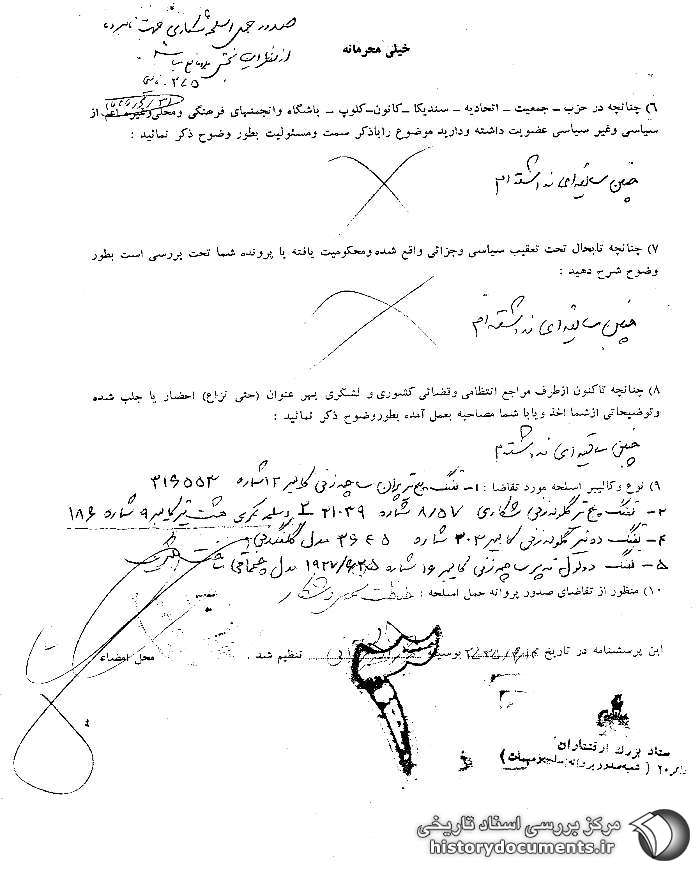 خیلی محرمانه
صدور حمل اسلحه شکاری جهت نامبرده
از نظر این بخش بلامانع
۶) چنانچه در حزب ـ جمعیت ـ اتحادیه ـ سندیکا ـ کانون ـ کلوپ ـ باشگاه وانجمنهای فرهنگی ومحلی وغیره اعم از
سیاسی وغیر سیاسی عضویت داشته ودارید موضوع راباذکر سمت ومسئولیت بطور وضوح ذکر نمائید :
چنین سابقه‌ای نداشته‌ام
۷) چنانچه تابحال تحت تعقیب سیاسی وجزائی واقع شده ومحکومیت یافته یا پرونده شما تحت بررسی است بطور
وضوح شرح دهید :
چنین سابقه‌ای نداشته‌ام
۸) چنانچه تاکنون ازطرف مراجع انتظامی وقضائی کشوری و لشگری بهر عنوان (حتی نزاع) احضار یا جلب شده
وتوضیحاتی ازشما اخذ ویابا شما مصاحبه بعمل آمده بطوروضوح ذکر نمائید :
چنین سابقه‌ای نداشته‌ام
۹) نوع وکالیبر اسلحه مورد تقاضا : ۱ـ تفنگ پنج تیر پران ساچمه‌زنی کالیبر ۱۲ شماره ۳۱۶۵۵۳
۲ـ تفنگ پنج تیر گلوله‌زنی شکاری ۸/۵۷ شماره ۲۱۰۳۹ ۳ـ اسلحه کمری هشت تیر کالیبر ۹ شماره ۱۸۶
۴ـ تفنگ ده تیر گلوله‌زنی کالیبر ۳۰۳ شماره ۳۶۴۵ مدل
۵ـ تفنگ دولول ته‌پر ساچمه‌زنی کالیبر ۱۶ شماره مدل چخماقی
۱۰) منظور از تقاضای صدور پروانه حمل اسلحه : حفاظت و شکار
این پرسشنامه در تاریخ بوسیله تنظیم شد . محل امضاء
۴
ستاد بزرگ ارتشتاران
مرکز بررسی اسناد تاریخی
historydocuments.ir